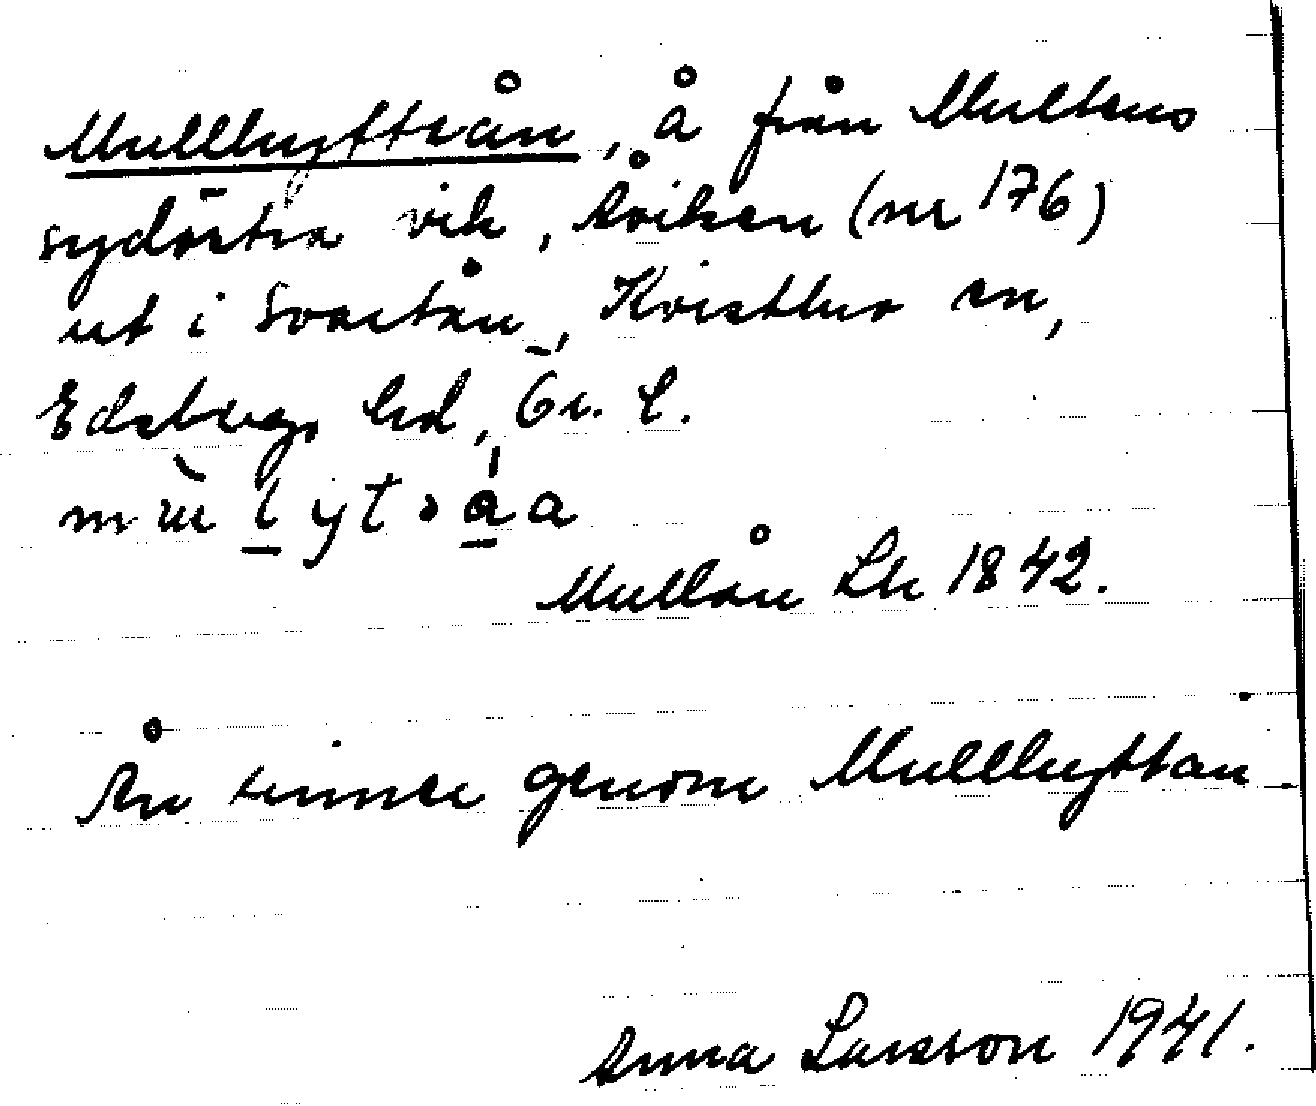 Mullhyttån, å från Multens
sydöstra vik, Åviken (nr 176)
ut i Svartån, Kvistbro sn,
Edsbergs hd, Ör. l.
Mullån Lk 1842.
Ån rinner genom Mullhyttan
Anna Larsson 1941.